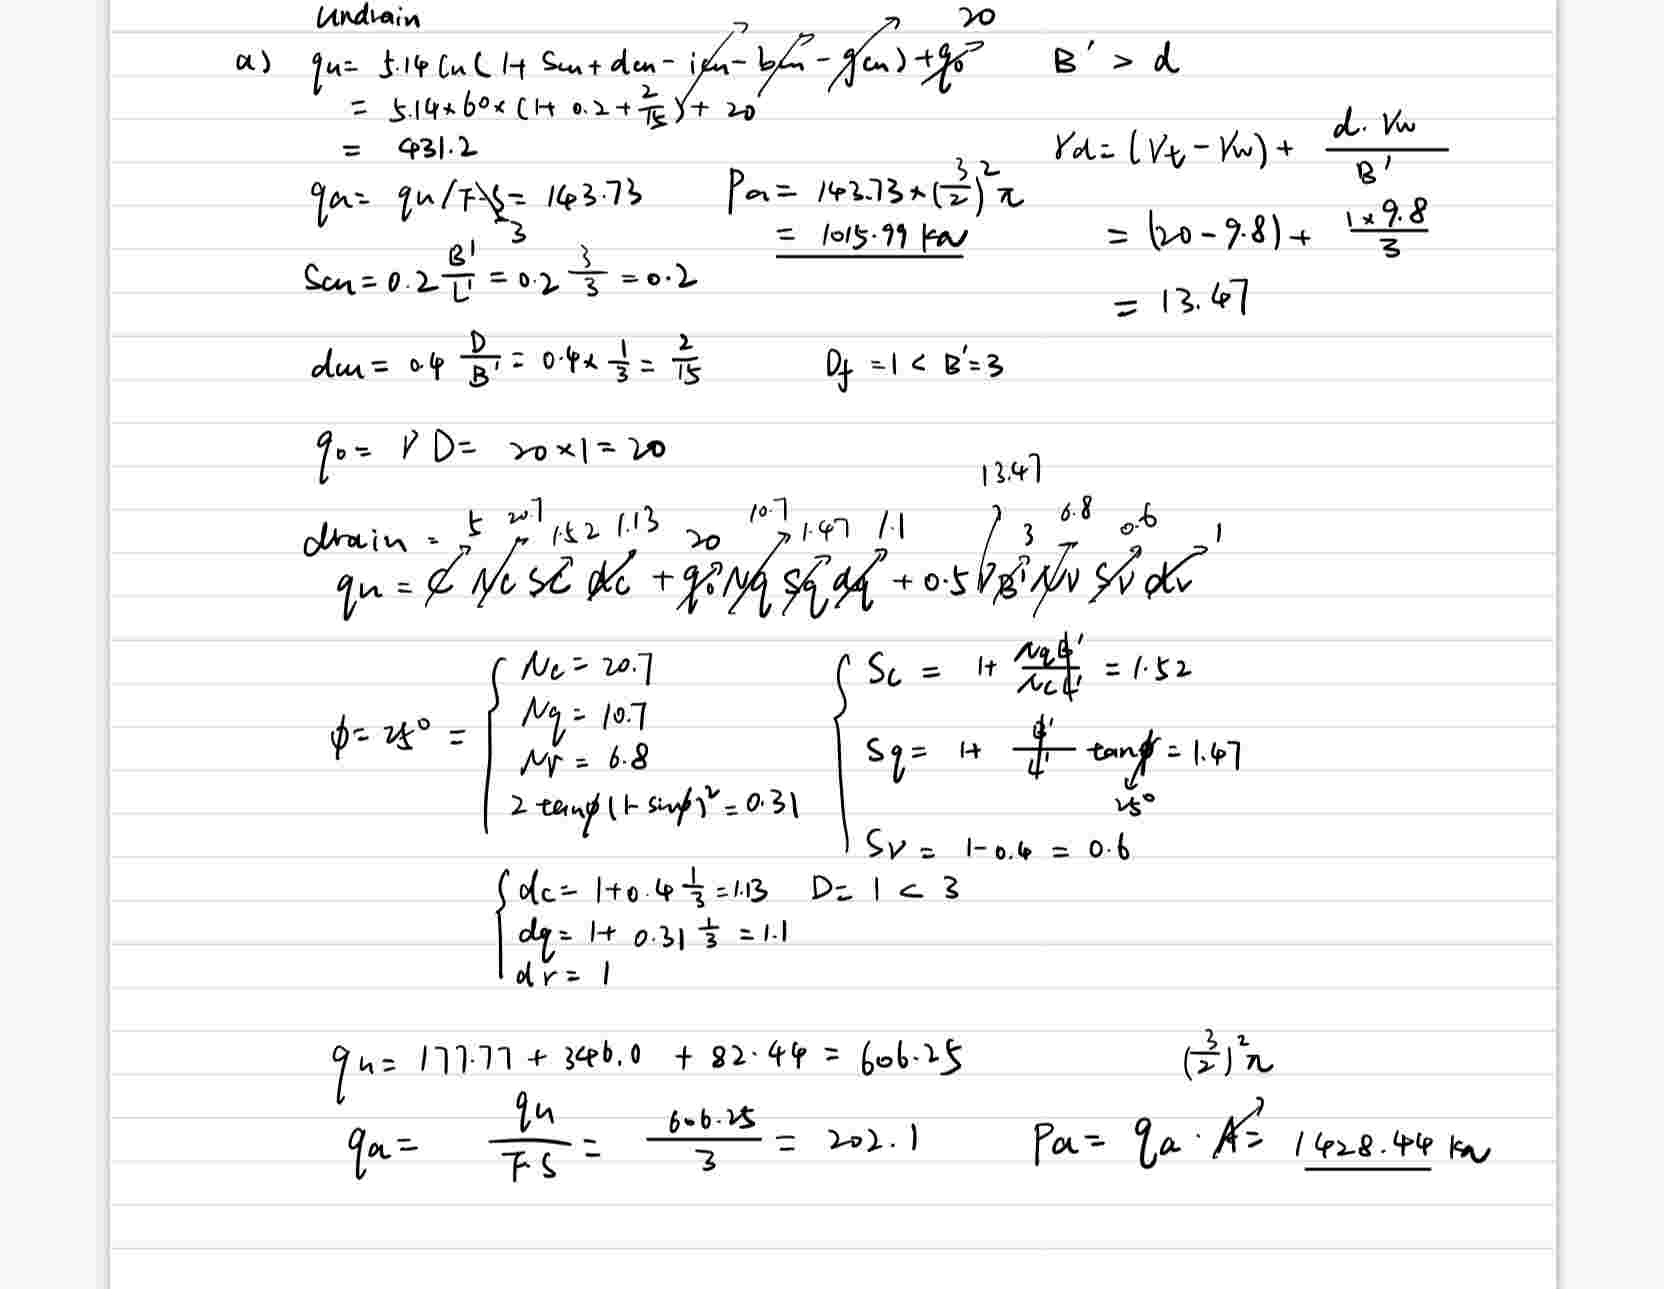 Undrain
a) qu = 5.14 Cu (1+ Scu + dcu - icu - bcu - gcu) + q₀ 20 B' > d
= 5.14 × 60 × (1+ 0.2 + 2/15) + 20
= 431.2
γd = (γt - γw) + d. γw / B'
qa = qu/FS = 143.73 Pa = 143.73 × (3/2)² π
3
= 1015.99 kN
= (20 - 9.8) + 1×9.8 / 3
Scu = 0.2 B'/L' = 0.2 3/3 = 0.2
= 13.47
dcu = 0.4 D/B' = 0.4 × 1/3 = 2/15 Df = 1 < B' = 3
q₀ = γ D = 20 × 1 = 20
13.47
drain = 5 20.7 1.52 1.13 20 10.7 1.47 1.1 3 6.8 0.6 1
qu = c Nc Sc dc + q₀ Nq Sq dq + 0.5 γ B' Nγ Sγ dγ
φ = 25° =
Nc = 20.7
Nq = 10.7
Nγ = 6.8
2 tanφ (1- sinφ)² = 0.31
Sc = 1+ Nq B' / Nc L' = 1.52
Sq = 1+ B'/L' tanφ = 1.47
25°
Sγ = 1-0.4 = 0.6
dc = 1+0.4 1/3 = 1.13 D = 1 < 3
dq = 1+ 0.31 1/3 = 1.1
dγ = 1
qu = 177.77 + 346.0 + 82.44 = 606.25 (3/2)² π
qa = qu / FS = 606.25 / 3 = 202.1 Pa = qa · A = 1428.44 kN